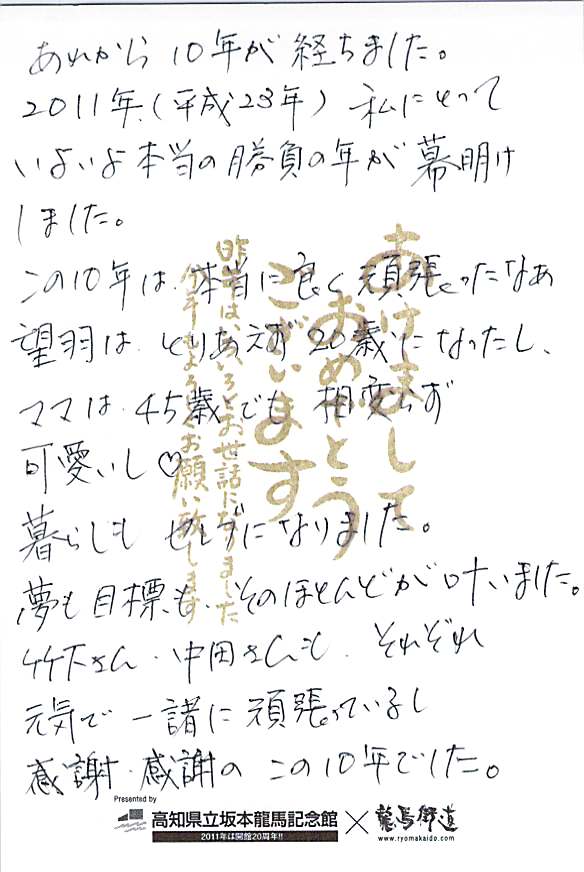 あれから10年が経ちました。
2011年(平成23年)私にとって
いよいよ本当の勝負の年が幕明け
しました。
この10年は、本当に良く頑張ったなあ
望羽は、とりあえず20歳になったし、
ママは、45歳でも相変らず
可愛いし♡
暮らしも になりました。
夢も目標も、そのほとんどが叶いました。
竹下さん、中田さんも、それぞれ
元気で一諸に頑張っているし
感謝、感謝の この10年でした。
あけまして
おめでとう
ございます
昨年はいろいろとお世話になりました
今年もよろしくお願い致します
Presented by
高知県立坂本龍馬記念館
2011年は開館20周年!!
×
龍馬街道
www.ryomakaido.com